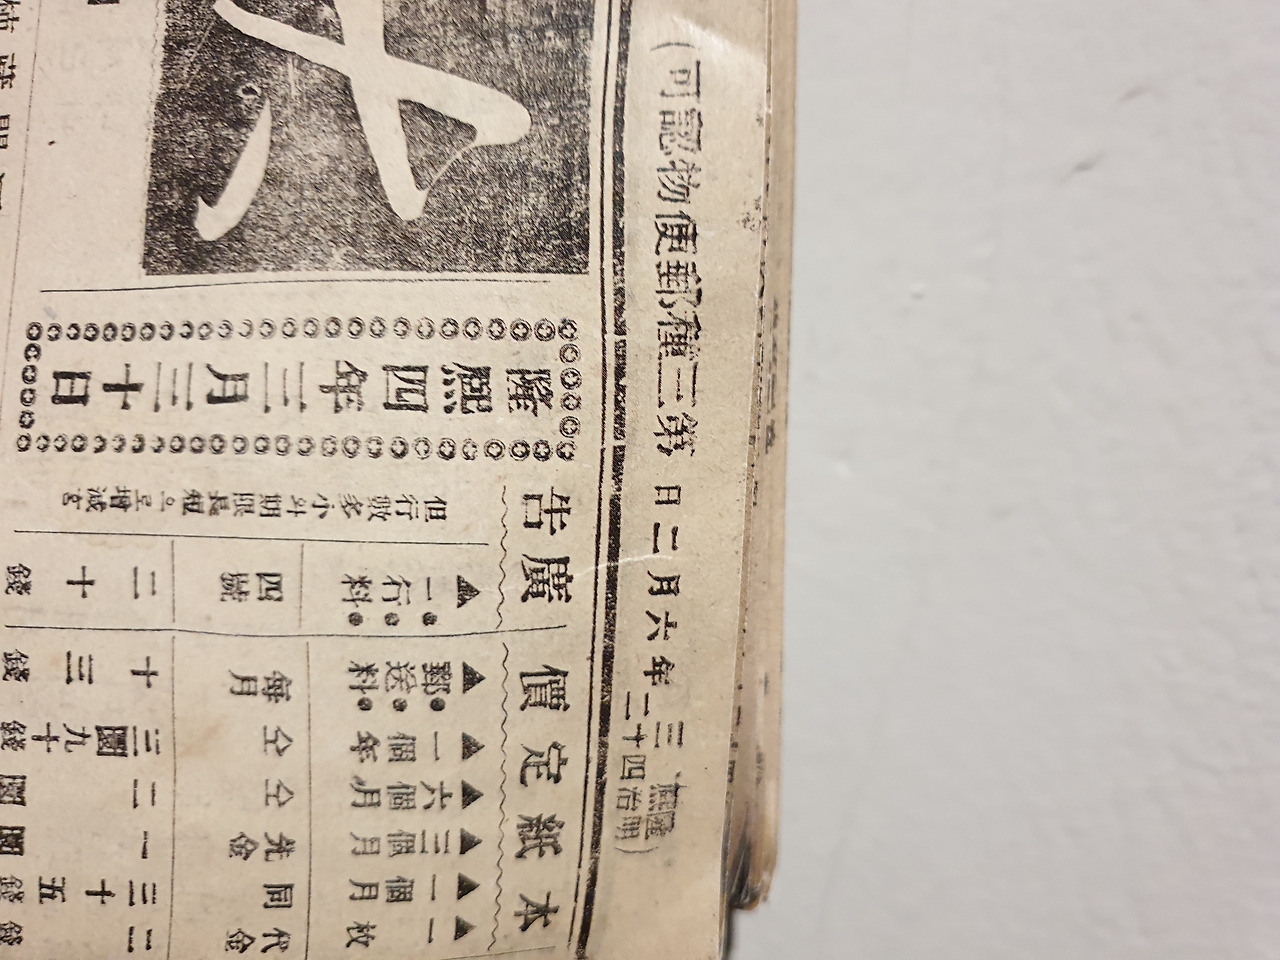 (隆熙三
明治四十二年六月二日第三種郵便物認可)
本紙定價
▲一枚 代金 二錢
▲一個月 同 三十五錢
▲三個月 先金 一圓
▲六個月 仝 二圓
▲一個年 仝 三圓九十錢
▲郵送料 每月 十三錢
廣告
▲一行料 四號 二十錢
但行數多小와期限長短으로增減홈
隆熙四年三月三十日